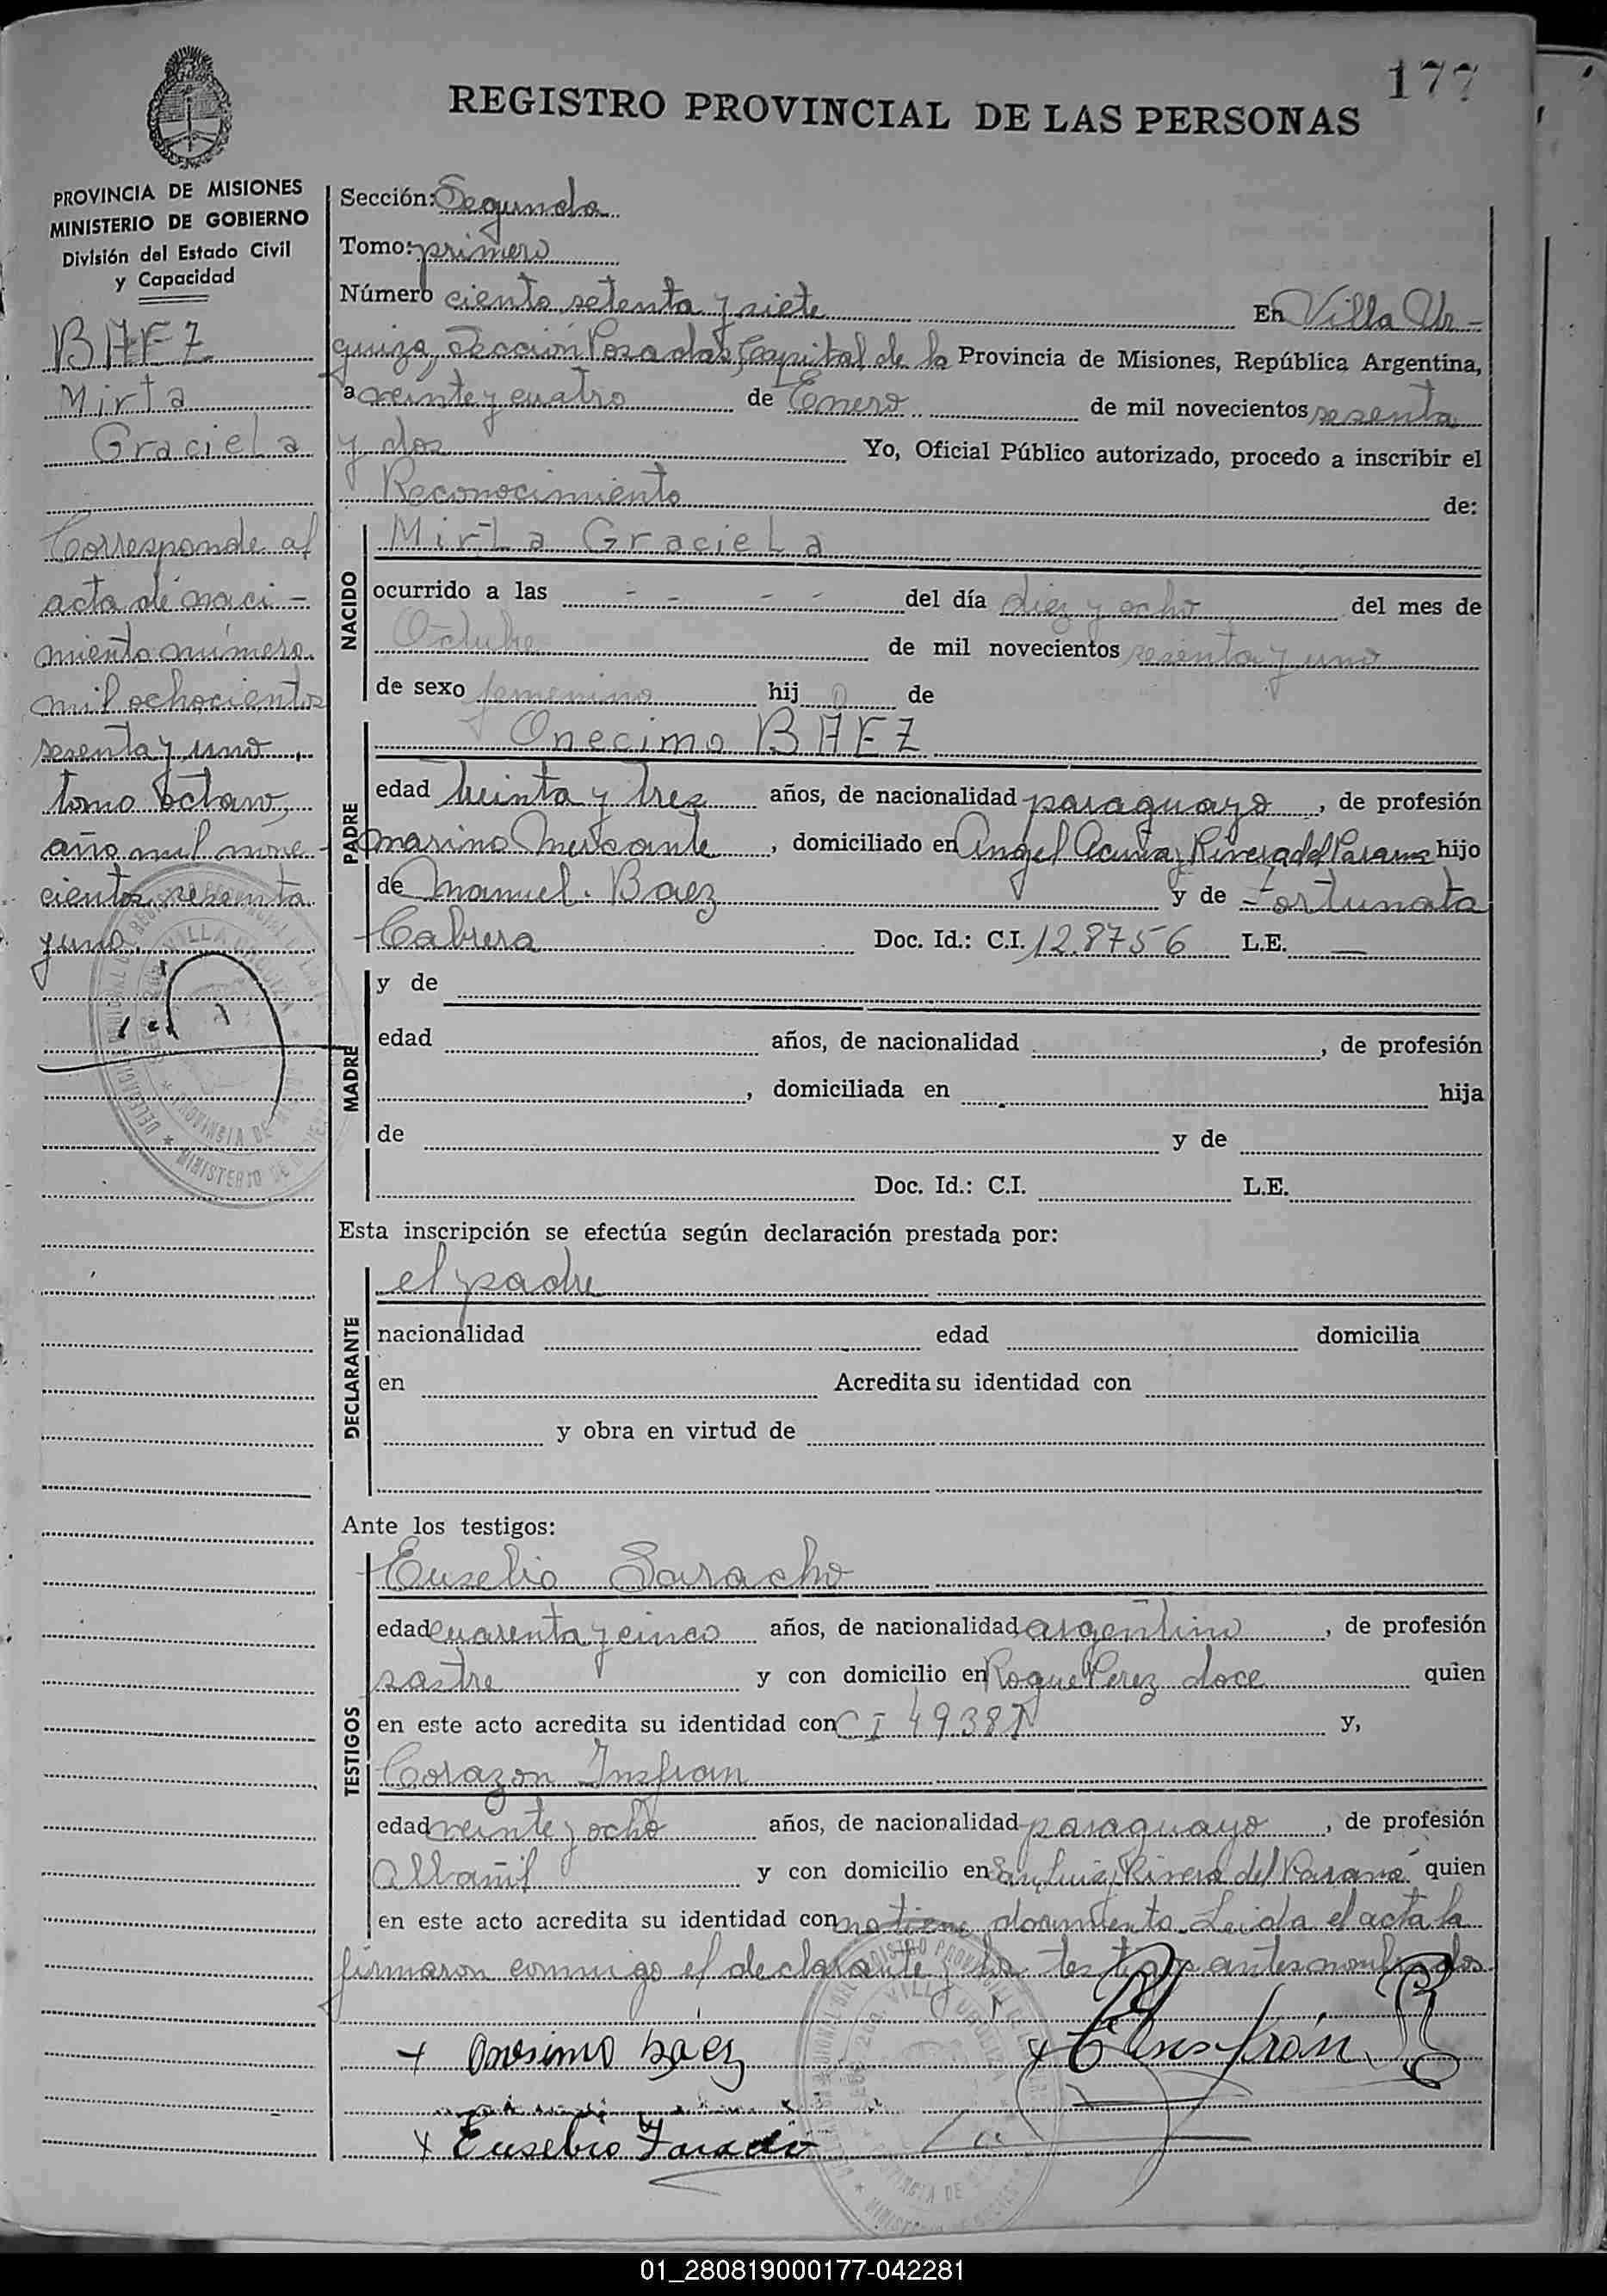 177
REGISTRO PROVINCIAL DE LAS PERSONAS
PROVINCIA DE MISIONES
MINISTERIO DE GOBIERNO
División del Estado Civil
y Capacidad
BAEZ
Mirta
Graciela
Corresponde al
acta de naci-
miento número
mil ochocientos
sesenta y uno,
tomo octavo,
año mil nove-
cientos sesenta
y uno.
Sección: Segunda
Tomo: primero
Número ciento setenta y siete En Villa Ur-
quiza, Sección Posadas, Capital de la Provincia de Misiones, República Argentina,
a veinte y cuatro de Enero de mil novecientos sesenta
y dos Yo, Oficial Público autorizado, procedo a inscribir el
Reconocimiento de:
NACIDO
Mirta Graciela
ocurrido a las - - - - del día diez y ocho del mes de
Octubre de mil novecientos sesenta y uno
de sexo femenino hij a de
PADRE
Onecimo BAEZ
edad treinta y tres años, de nacionalidad paraguayo, de profesión
marino mercante, domiciliado en Angel Acuña y Rivera del Parana hijo
de Manuel Baez y de Fortunata
Cabrera Doc. Id.: C.I. 128756 L.E. —
MADRE
y de
edad años, de nacionalidad , de profesión
, domiciliada en hija
de y de
Doc. Id.: C.I. L.E.
Esta inscripción se efectúa según declaración prestada por:
DECLARANTE
el padre
nacionalidad edad domicilia
en Acredita su identidad con
y obra en virtud de
Ante los testigos:
TESTIGOS
Eusebio Saracho
edad cuarenta y cinco años, de nacionalidad argentino, de profesión
sastre y con domicilio en Roque Perez doce quien
en este acto acredita su identidad con C I 49.387 y,
Corazon Insfran
edad veinte y ocho años, de nacionalidad paraguayo, de profesión
Albañil y con domicilio en San Luis y Rivera del Parana quien
en este acto acredita su identidad con no tiene documento. Leida el acta la
firmaron conmigo el declarante y los testigos antes nombrados
+ Onesimo Baez x C Insfrán
x Eusebio Saracho
01_280819000177-042281